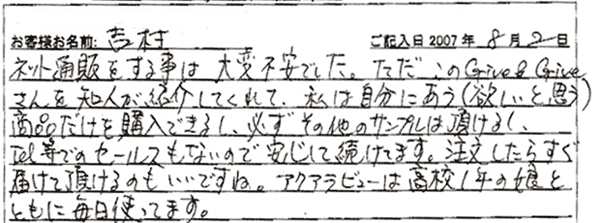 お客様お名前: 吉村 ご記入日 2007年 8月 2日
ネット通販をする事は 大変不安でした。ただ このGive & Give
さんを知人が紹介してくれて、私は自分にあう(欲しいと思う)
商品だけを購入できるし、必ず その他のサンプルは頂けるし、
Tel等でのセールスもないので安心して続けてます。注文したらすぐ
届けて頂けるのもいいですね。アクアラビューは高校1年の娘と
ともに毎日使ってます。